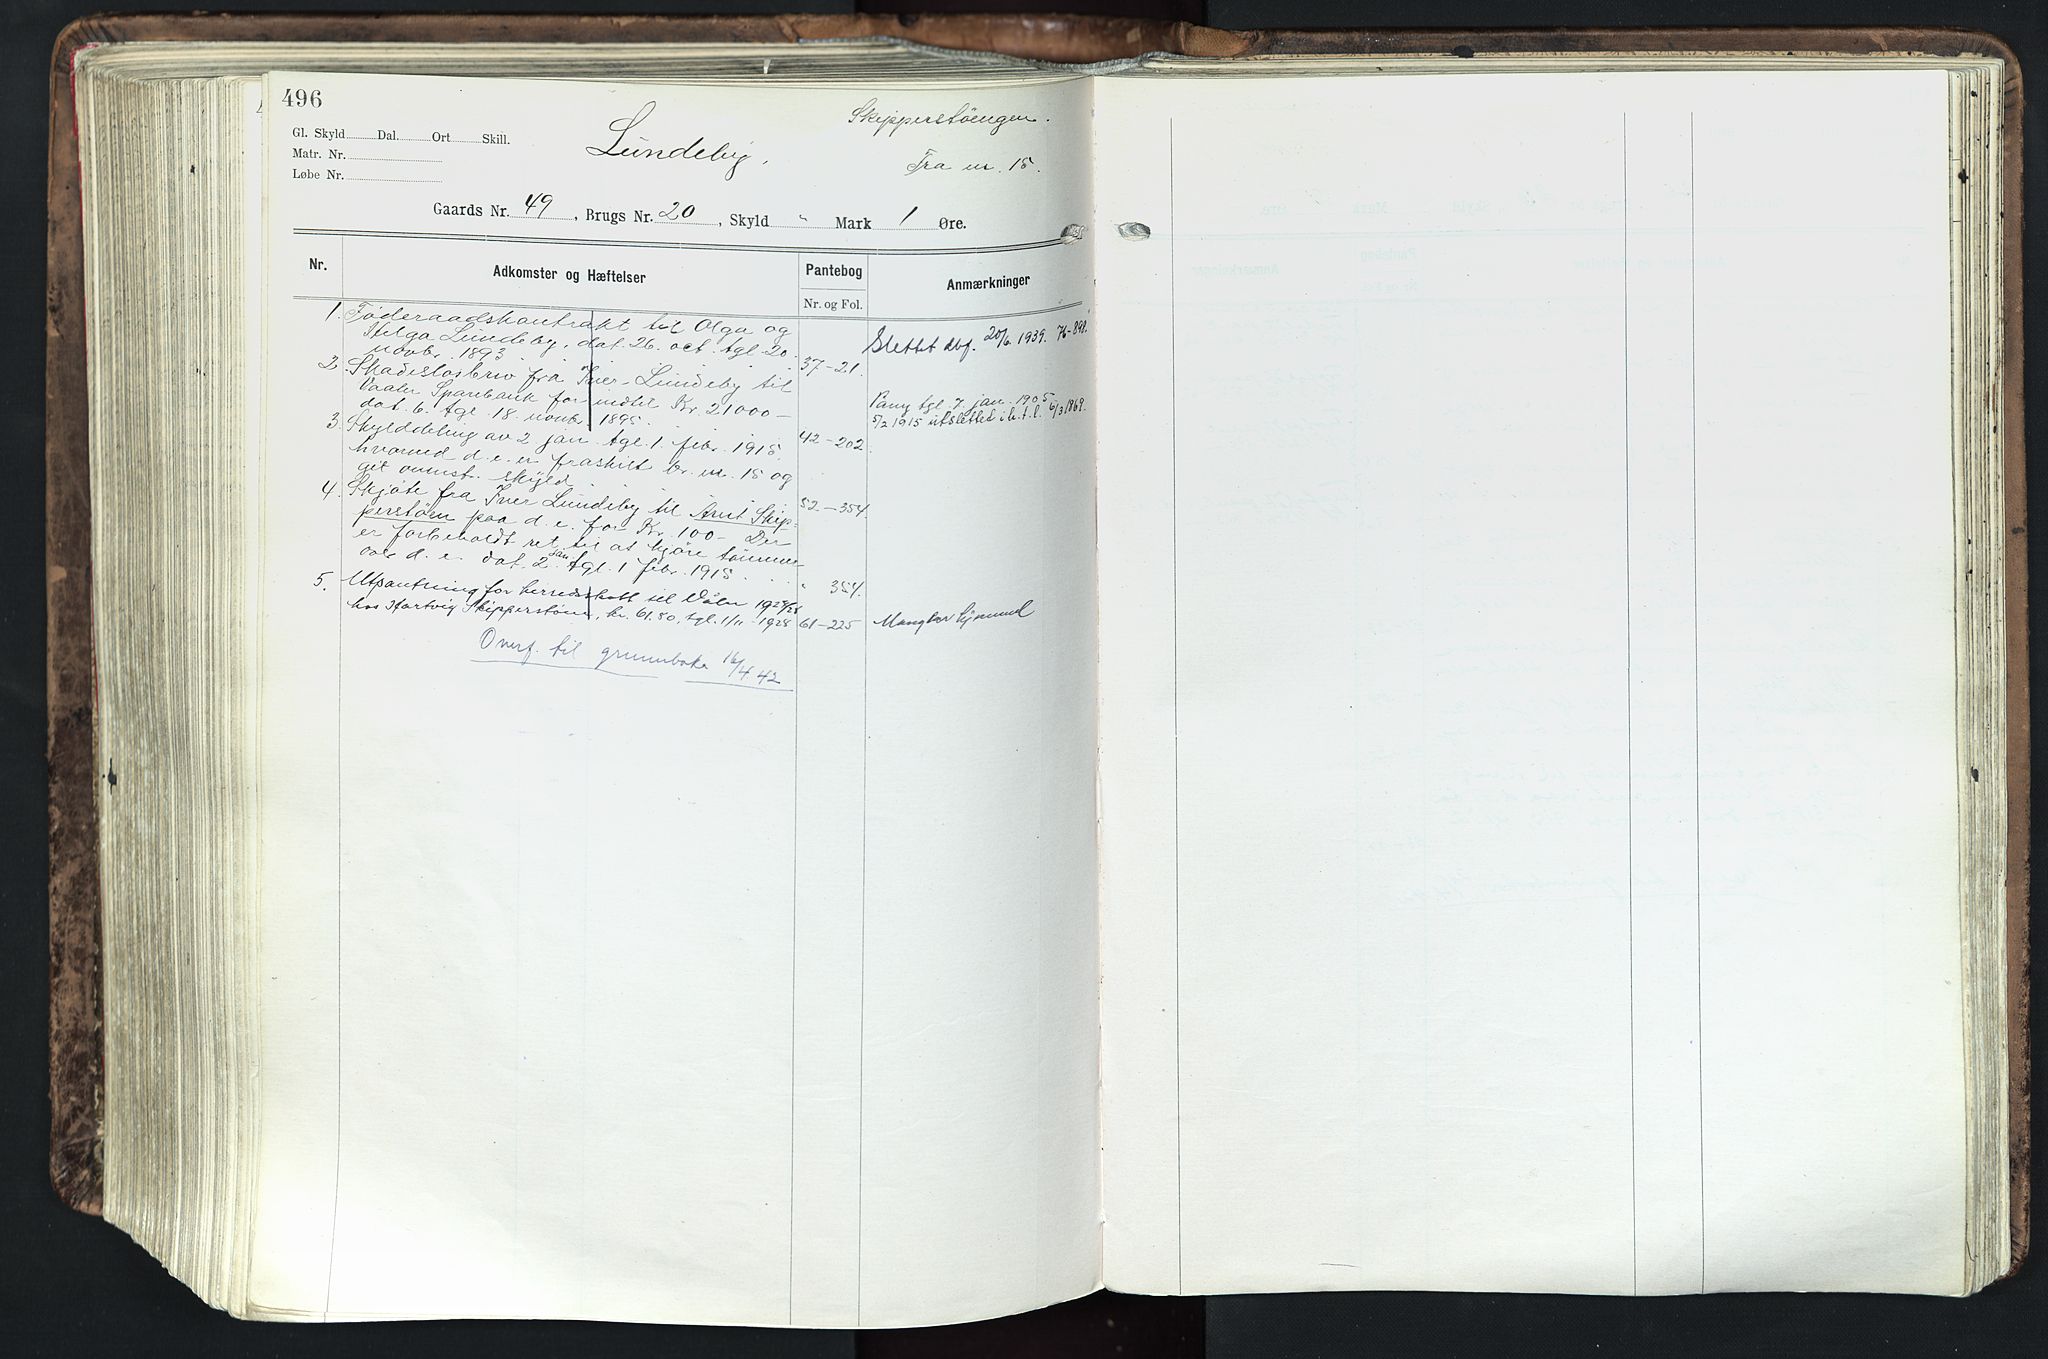 496
Gl. Skyld Dal. Ort Skill.
Matr. Nr.
Løbe Nr.
Lundeby,
Skipperstøengen.
Fra nr. 15.
Gaards Nr. 49, Brugs Nr. 20, Skyld " Mark 1 Øre.
Nr. Adkomster og Hæftelser Pantebog Anmærkninger
Nr. og Fol.
1. Føderaadskontrakt til Olga og
Helga Lundeby, dat. 26. oct. tgl. 20.
novbr. 1893. 37-21. Slettet 20/6 1939. 76-898.
2. Skadesløsbrev fra Iver Lundeby til
Vaaler Sparebank for indtil Kr. 21000-
dat. 6. tgl. 18. novbr. 1895. 42-202.
tgl. 7. jan. 1905
5/2 1915 utslettet i h. t. l. 6/3 1869.
3. Skylddeling av 2 jan. tgl. 1. febr. 1915.
hvorved d. e. er fraskilt br. nr. 15 og
git ovnnst. skyld 52-354.
4. Skjøte fra Iver Lundeby til Arnt Skip-
perstøen paa d. e. for Kr. 100- Der
er forbeholdt ret til at kjøre tømmer
over d. e. dat. 2 jan. tgl. 1 febr. 1915. " 354.
5. Utpantning for herredsskatt til Våler 1927/28
hos Hartvig Skipperstøen, kr. 61.80, tgl. 1/11 1928 61-225
Overf. til grunnboka 16/4 42